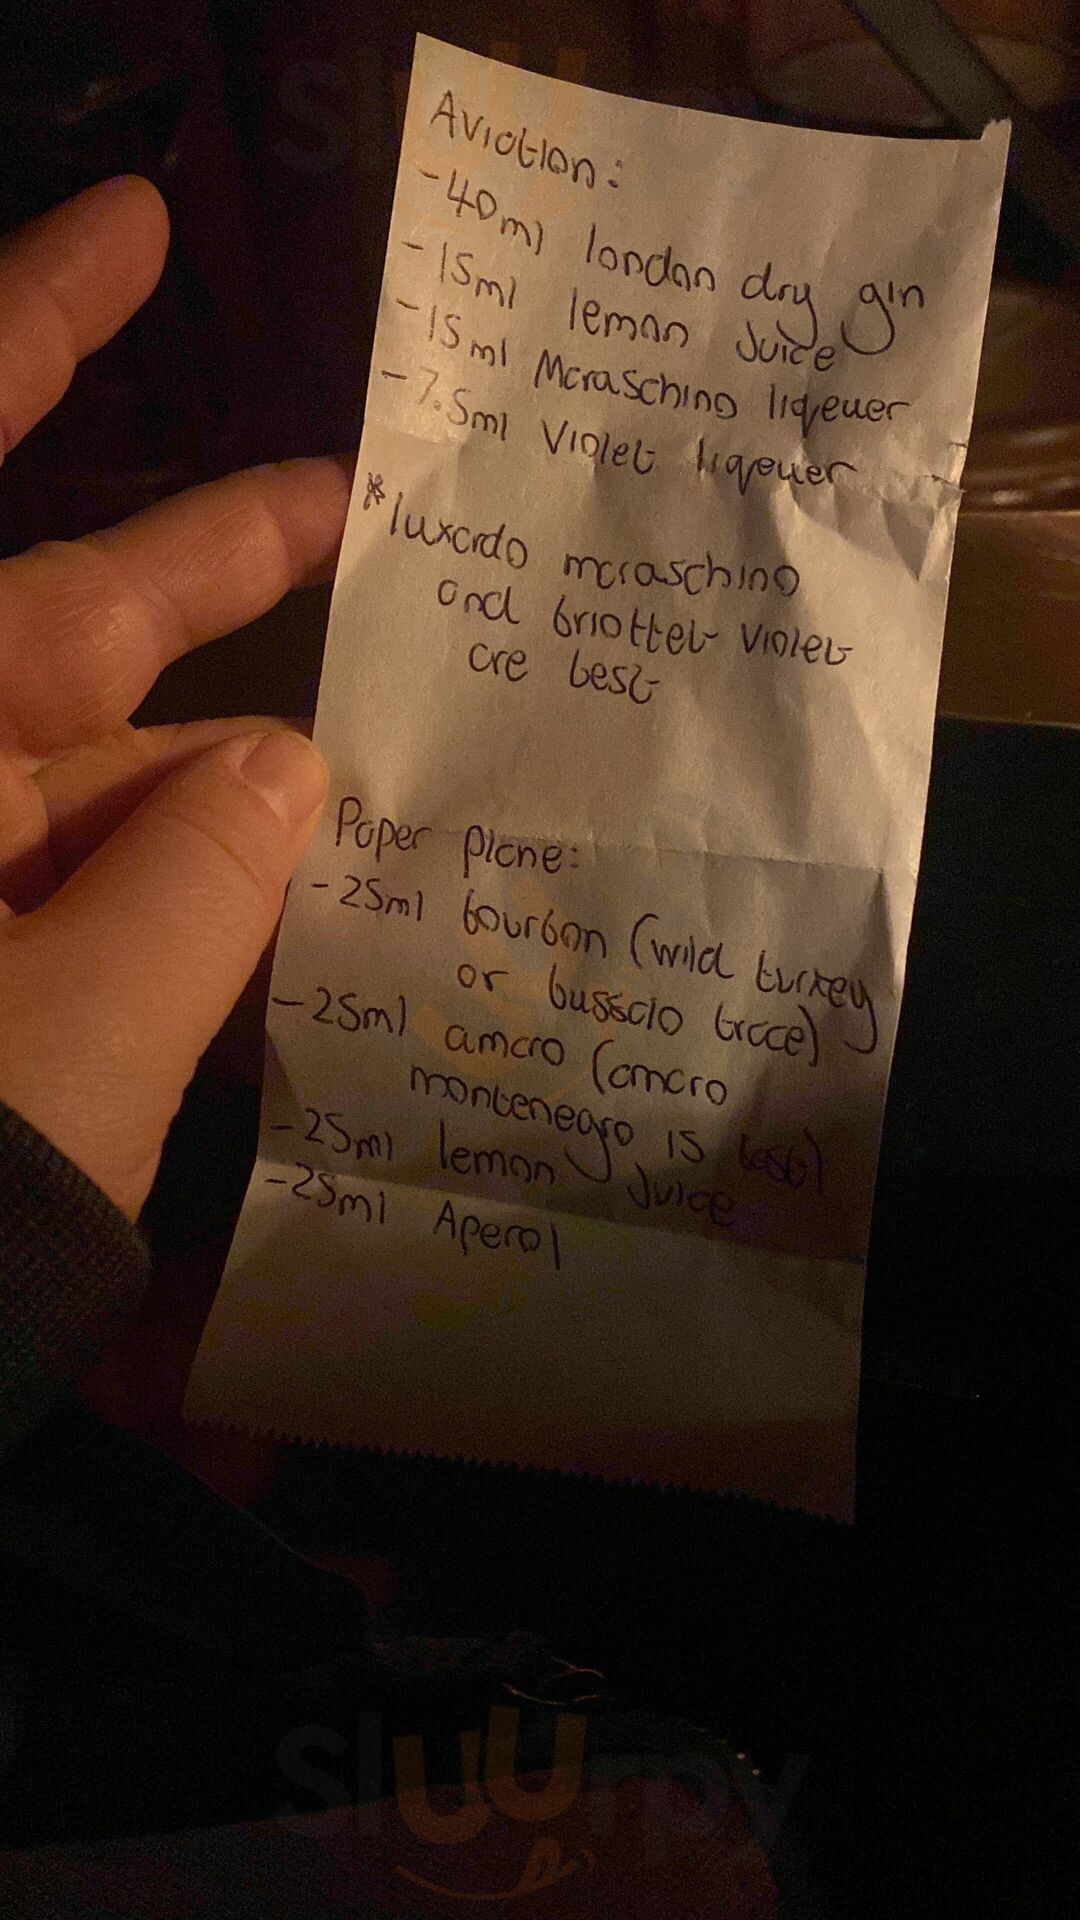 Aviation:
-40ml london dry gin
-15ml lemon juice
-15ml Maraschino liqeuer
-7.5ml Violet liqeuer
*luxardo maraschino
and briottet violet
are best
Paper plane:
-25ml bourbon (wild turkey
or bussalo trace)
-25ml amaro (amaro
montenegro is best)
-25ml lemon juice
-25ml Aperol
Sluurpy